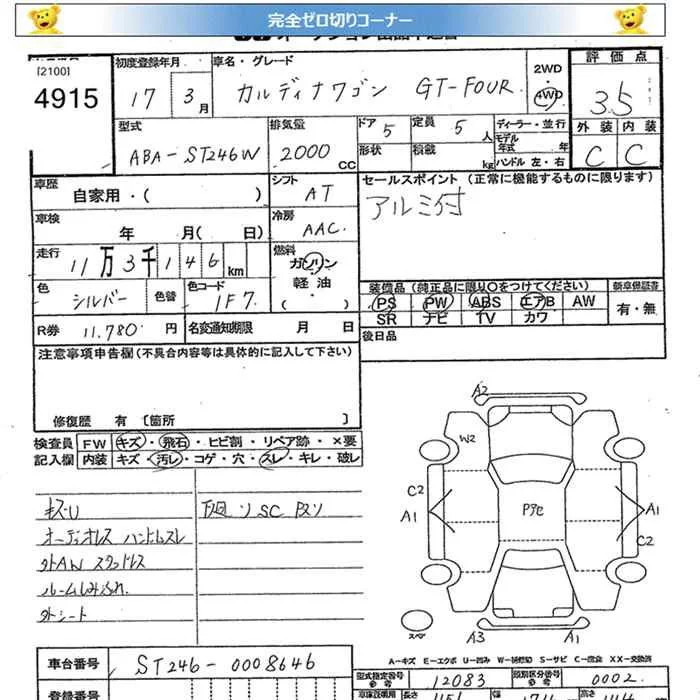 完全ゼロ切りコーナー
[2100]
4915
初度登録年月
17 3月
車名・グレード
カルディナワゴン GT-FOUR
2WD
・
4WD
評価点
3.5
外装 内装
C C
型式
ABA-ST246W
排気量
2000 CC
ドア 5
形状
定員 5人
積載 kg
ディーラー・並行
モデル年式 年
ハンドル 左・右
車歴 自家用・( )
シフト
AT
セールスポイント(正常に機能するものに限ります)
アルミ付
車検 年 月( 日)
冷房
AAC
走行
11万3千146km
燃料
ガソリン
軽油
( ・ )
色
シルバー
色替
色コード
1F7
装備品(純正品に限り○をつけてください)
新車保証書
PS PW ABS エアB AW
SR ナビ TV カワ
有・無
R券 11,780 円
名変通知期限 月 日
後日品
注意事項申告欄(不具合内容等は具体的に記入して下さい)
修復歴 有〔箇所 〕
検査員記入欄
FW キズ・飛石・ヒビ割・リペア跡・×要
内装 キズ・汚レ・コゲ・穴・スレ・キレ・破レ
キズU
オーディオレス ハンドルスレ
外AW スタッドレス
ルームしみ汚れ
外シート
下廻りSC 及ソ
A2
W2
C2
A1
Pアセ
A1
C2
スペア
A3
A1
A-キズ E-エクボ U-凹み W-補修跡 S-サビ C-腐食 XX-交換済
車台番号
ST246-0008646
型式指定番号
12083
類別区分番号
0002
登録番号